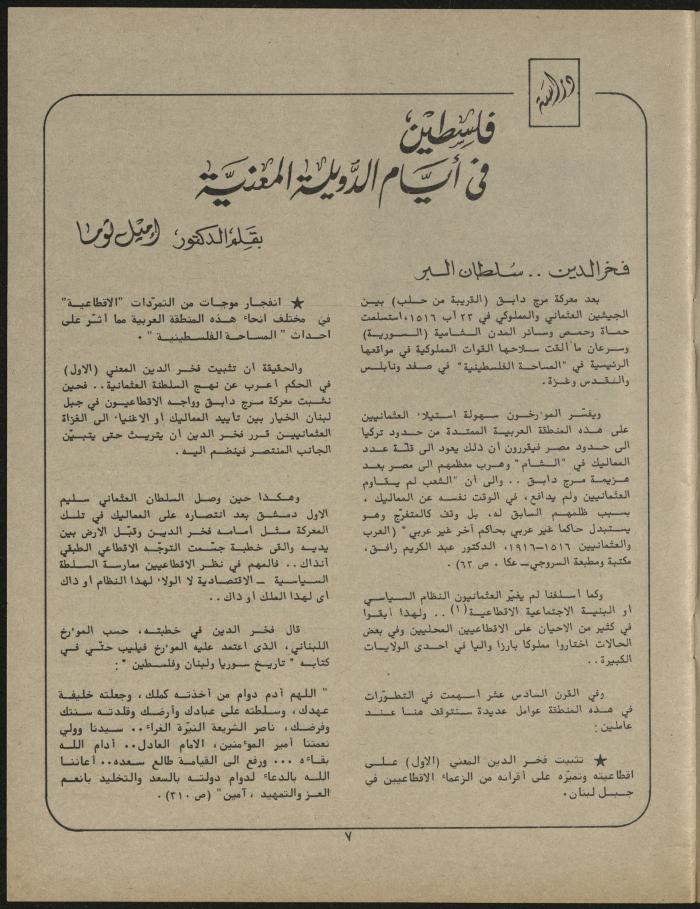 دراسة
فلسطين
في أيام الدويلة المعنية
بقلم الدكتور إميل توما
فخر الدين .. سلطان البر
بعد معركة مرج دابق (القريبة من حلب) بين
الجيشين العثماني والمملوكي في ٢٣ آب ١٥١٦، استسلمت
حماة وحمص وسائر المدن الشامية (السورية)
وسرعان ما ألقت سلاحها القوات المملوكية في مواقعها
الرئيسية في "المساحة الفلسطينية" في صفد ونابلس
والقدس وغزة.
ويفسّر المؤرخون سهولة استيلاء العثمانيين
على هذه المنطقة العربية الممتدة من حدود تركيا
الى حدود مصر فيقررون أن ذلك يعود الى قلّة عدد
المماليك في "الشام" وهرب معظمهم الى مصر بعد
هزيمة مرج دابق .. والى أن "الشعب لم يقاوم
العثمانيين ولم يدافع، في الوقت نفسه عن المماليك ،
بسبب ظلمهم السابق له، بل وقف كالمتفرج وهو
يستبدل حاكما غير عربي بحاكم آخر غير عربي" (العرب
والعثمانيين ١٥١٦–١٩١٦، الدكتور عبد الكريم رافق،
مكتبة ومطبعة السروجي – عكا ، ص ٦٢) .
وكما أسلفنا لم يغيّر العثمانيون النظام السياسي
أو البنية الاجتماعية الاقطاعية(١) .. ولهذا أبقوا
في كثير من الاحيان على الاقطاعيين المحليين وفي بعض
الحالات اختاروا مملوكا بارزا واليا في احدى الولايات
الكبيرة ..
وفي القرن السادس عشر أسهمت في التطوّرات
في هذه المنطقة عوامل عديدة سنتوقف هنا عند
عاملين:
★ تثبيت فخر الدين المعني (الاول) على
اقطاعيته وتميّزه على أقرانه من الزعماء الاقطاعيين في
جبل لبنان.
★ انفجار موجات من التمرّدات "الاقطاعية"
في مختلف انحاء هذه المنطقة العربية مما أثّر على
احداث "المساحة الفلسطينية" .
والحقيقة أن تثبيت فخر الدين المعني (الاول)
في الحكم أعرب عن نهج السلطنة العثمانية.. فحين
نشبت معركة مرج دابق وواجه الاقطاعيون في جبل
لبنان الخيار بين تأييد المماليك أو الاغنياء الى الغزاة
العثمانيين قرر فخر الدين أن يتريث حتى يتبيّن
الجانب المنتصر فينضم اليه.
وهكذا حين وصل السلطان العثماني سليم
الاول دمشق بعد انتصاره على المماليك في تلك
المعركة مثل أمامه فخر الدين وقبّل الأرض بين
يديه والقى خطبة جسّمت التوجّه الاقطاعي الطبقي
آنذاك .. فالمهم في نظر الاقطاعيين ممارسة السلطة
السياسية – الاقتصادية لا الولاء لهذا النظام أو ذاك
أي لهذا الملك أو ذاك ..
قال فخر الدين في خطبته، حسب المؤرخ
اللبناني، الذي اعتمد عليه المؤرخ فيليب حتّي في
كتابه "تاريخ سوريا ولبنان وفلسطين":
"اللهم أدم دوام من أخذته كملك، وجعلته خليفة
عهدك، وسلطته على عبادك وأرضك وقلدته سنتك
وفرضك، ناصر الشريعة النيّرة الغراء.. سيدنا وولي
نعمتنا أمير المؤمنين، الامام العادل.. أدام الله
بقاءه ... ورفع الى القيامة طالع سعده.. أعاننا
الله بالدعاء لدوام دولته بالسعد والتخليد بانعم
العز والتمهيد ، آمين" (ص ٣١٠) .
٧